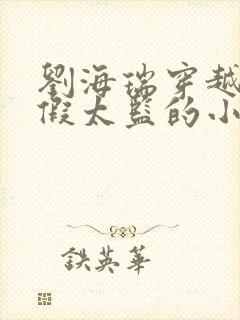 劉海瑞穿越
假太監的小
鉄英華